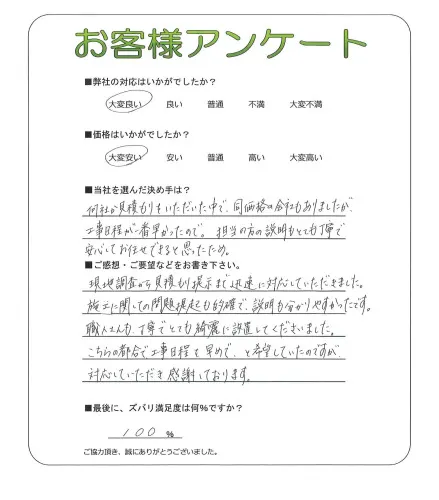 お客様アンケート
■弊社の対応はいかがでしたか?
大変良い 良い 普通 不満 大変不満
■価格はいかがでしたか?
大変安い 安い 普通 高い 大変高い
■当社を選んだ決め手は?
何社か見積もりをいただいた中で、同価格の会社もありましたが、
工事日程が一番早かったので。担当の方の説明もとても丁寧で
安心してお任せできると思ったため。
■ご感想・ご要望などをお書き下さい。
現地調査から見積もり提示まで迅速に対応していただきました。
施工に関しての問題提起も的確で、説明も分かりやすかったです。
職人さんも、丁寧でとても綺麗に設置してくださいました。
こちらの都合で工事日程を早めで、と希望していたのですが、
対応していただき感謝しております。
■最後に、ズバリ満足度は何%ですか?
100 %
ご協力頂き、誠にありがとうございました。